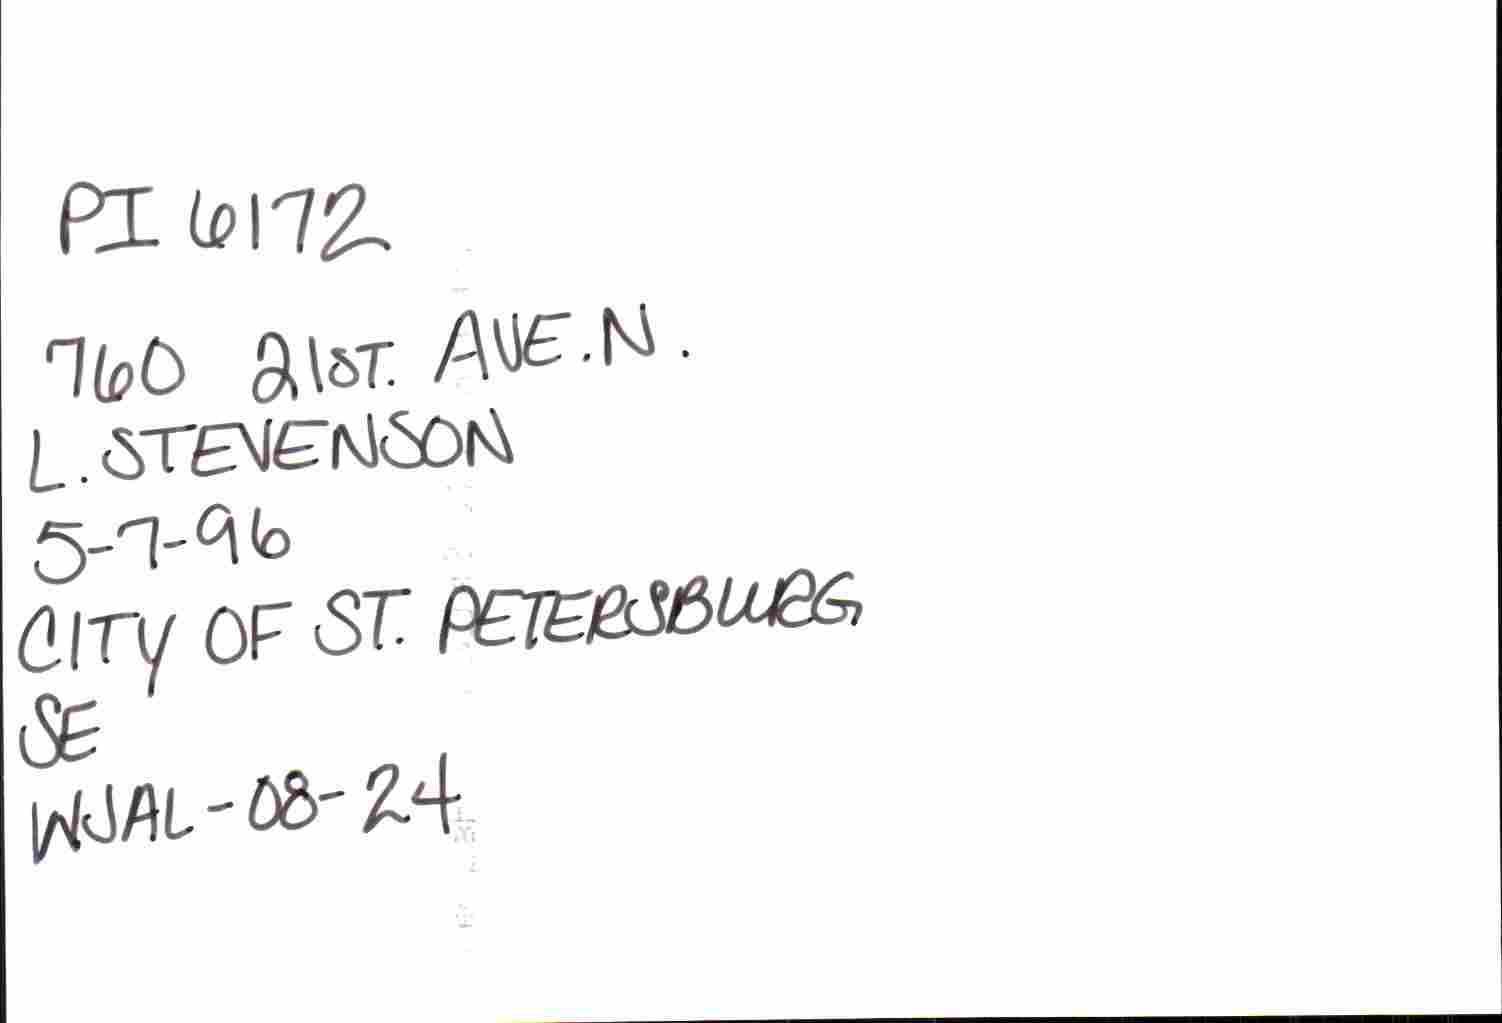 PI 6172
760 21ST. AVE. N.
L. STEVENSON
5-7-96
CITY OF ST. PETERSBURG
SE
WJAL-08-24